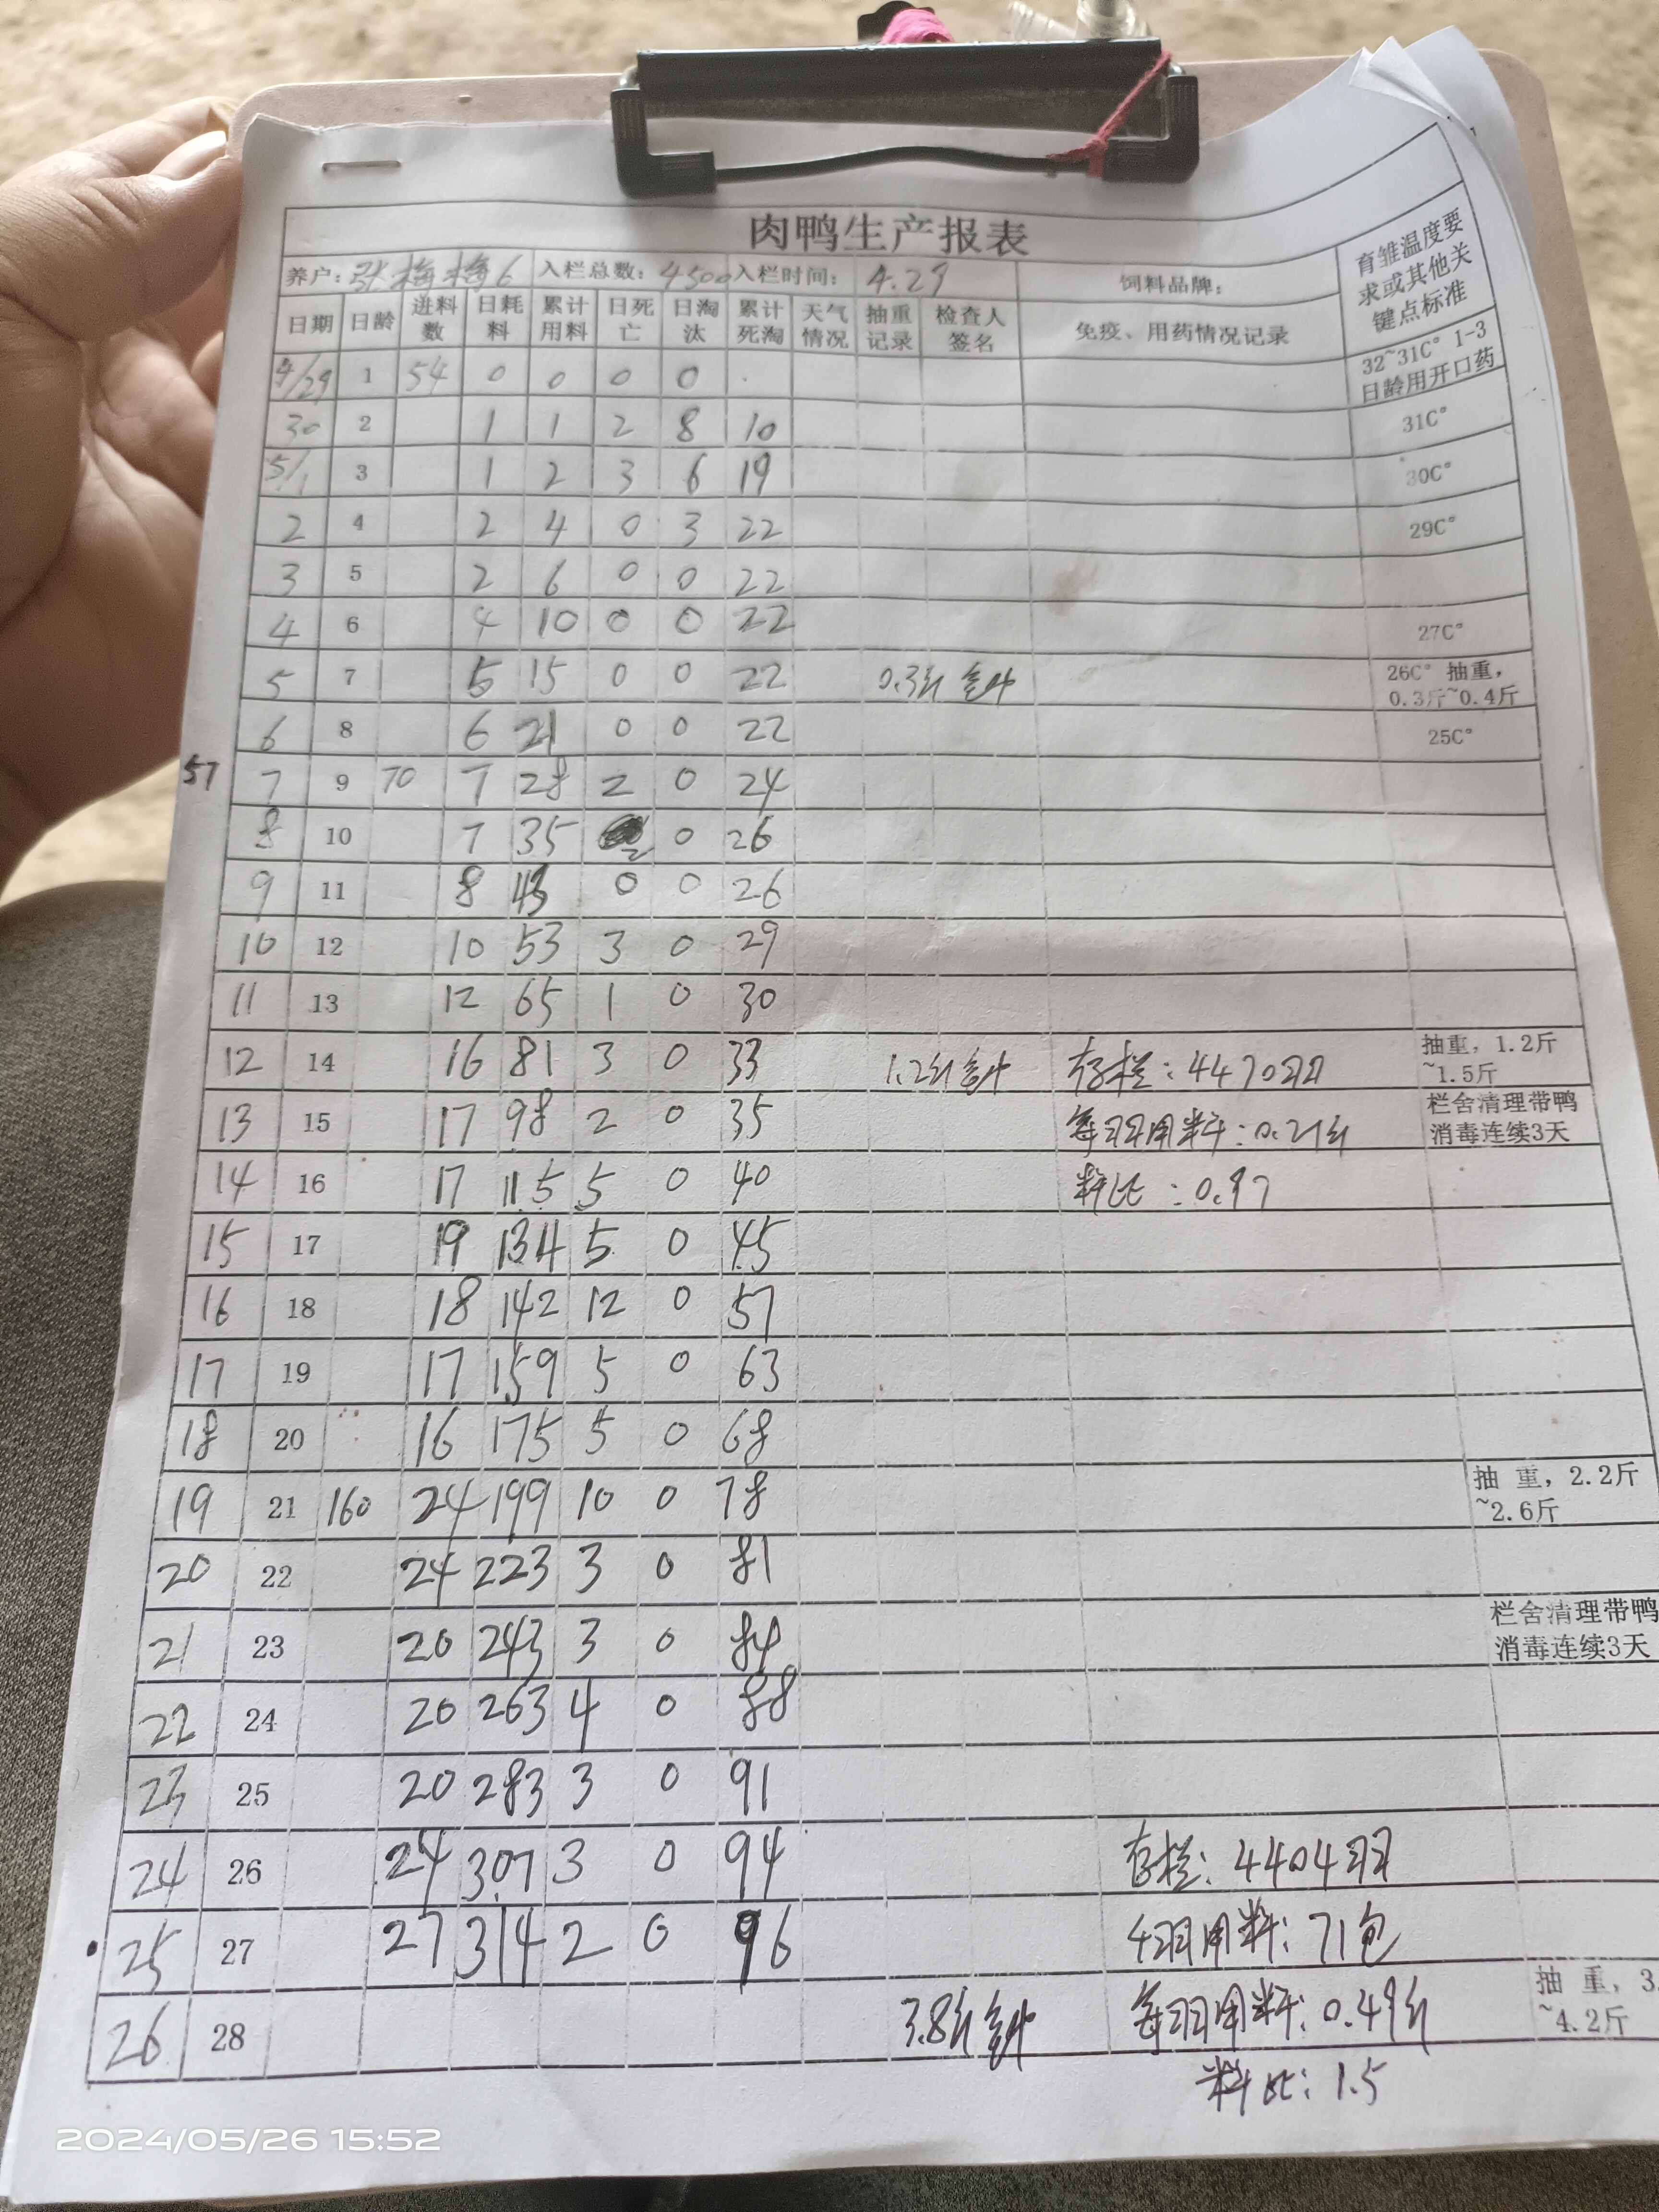 肉鸭生产报表
养户: 张梅梅6 入栏总数: 4500 入栏时间: 4.29 饲料品牌:
育雏温度要求或其他关键点标准
日期 日龄 进料数 日耗料 累计用料 日死亡 日淘汰 累计死淘 天气情况 抽重记录 检查人签名 免疫、用药情况记录
4/29 1 54 0 0 0 0 32~31C° 1-3日龄用开口药
30 2 1 1 2 8 10 31C°
5/1 3 1 2 3 6 19 30C°
2 4 2 4 0 3 22 29C°
3 5 2 6 0 0 22
4 6 4 10 0 0 22 27C°
5 7 5 15 0 0 22 0.3斤 26C° 抽重,0.3斤~0.4斤
6 8 6 21 0 0 22 25C°
57 7 9 70 7 28 2 0 24
8 10 7 35 2 0 26
9 11 8 43 0 0 26
10 12 10 53 3 0 29
11 13 12 65 1 0 30
12 14 16 81 3 0 33 1.2斤 存栏: 4470羽 抽重, 1.2斤~1.5斤
13 15 17 98 2 0 35 每羽用料: 0.21斤 栏舍清理带鸭消毒连续3天
14 16 17 115 5 0 40 料比: 0.97
15 17 19 134 5 0 45
16 18 18 142 12 0 57
17 19 17 159 5 0 63
18 20 16 175 5 0 68
19 21 160 24 199 10 0 78 抽 重, 2.2斤~2.6斤
20 22 24 223 3 0 81
21 23 20 243 3 0 84 栏舍清理带鸭消毒连续3天
22 24 20 263 4 0 88
23 25 20 283 3 0 91
24 26 24 307 3 0 94 存栏: 4404羽
25 27 27 314 2 0 96 用料: 71包
26 28 3.8斤 每羽用料: 0.49斤 抽 重, 3.~4.2斤
料比: 1.5
2024/05/26 15:52